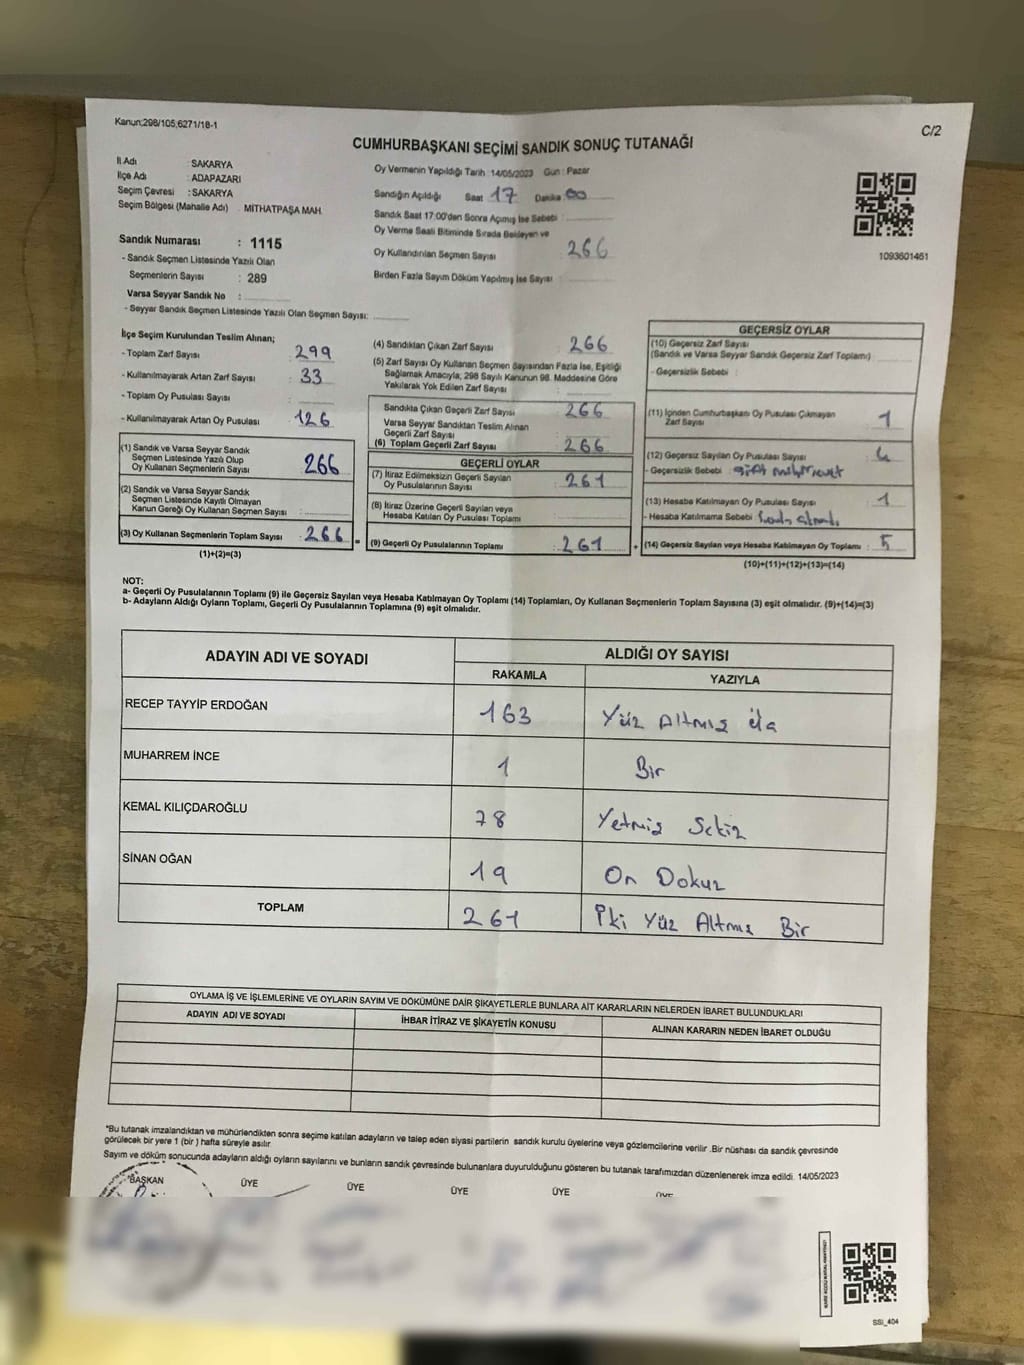 Kanun;298/105,6271/18-1
C/2
CUMHURBAŞKANI SEÇİMİ SANDIK SONUÇ TUTANAĞI
İl Adı : SAKARYA
İlçe Adı : ADAPAZARI
Seçim Çevresi : SAKARYA
Seçim Bölgesi (Mahalle Adı) . MİTHATPAŞA MAH.
Sandık Numarası : 1115
- Sandık Seçmen Listesinde Yazılı Olan
Seçmenlerin Sayısı : 289
Varsa Seyyar Sandık No :
- Seyyar Sandık Seçmen Listesinde Yazılı Olan Seçmen Sayısı:
Oy Vermenin Yapıldığı Tarih :14/05/2023 Gün : Pazar
Sandığın Açıldığı Saat 17 Dakika 00
Sandık Saat 17:00'den Sonra Açımış İse Sebebi :
Oy Verme Saati Bitiminde Sırada Bekleyen ve
Oy Kullandırılan Seçmen Sayısı 266
Birden Fazla Sayım Döküm Yapılmış İse Sayısı :
1093601461
İlçe Seçim Kurulundan Teslim Alınan;
- Toplam Zarf Sayısı : 299
- Kullanılmayarak Artan Zarf Sayısı : 33
- Toplam Oy Pusulası Sayısı :
- Kullanılmayarak Artan Oy Pusulası : 126
(1) Sandık ve Varsa Seyyar Sandık
Seçmen Listesinde Yazılı Olup
Oy Kullanan Seçmenlerin Sayısı : 266
(2) Sandık ve Varsa Seyyar Sandık
Seçmen Listesinde Kayıtlı Olmayan
Kanun Gereği Oy Kullanan Seçmen Sayısı :
(3) Oy Kullanan Seçmenlerin Toplam Sayısı : 266
(1)+(2)=(3)
(4) Sandıktan Çıkan Zarf Sayısı : 266
(5) Zarf Sayısı Oy Kullanan Seçmen Sayısından Fazla İse, Eşitliği
Sağlamak Amacıyla, 298 Sayılı Kanunun 98. Maddesine Göre
Yakılarak Yok Edilen Zarf Sayısı :
Sandıkta Çıkan Geçerli Zarf Sayısı : 266
Varsa Seyyar Sandıktan Teslim Alınan
Geçerli Zarf Sayısı :
(6) Toplam Geçerli Zarf Sayısı : 266
GEÇERLİ OYLAR
(7) İtiraz Edilmeksizin Geçerli Sayılan
Oy Pusulalarının Sayısı : 261
(8) İtiraz Üzerine Geçerli Sayılan veya
Hesaba Katılan Oy Pusulası Toplamı :
= (9) Geçerli Oy Pusulalarının Toplamı : 261
GEÇERSİZ OYLAR
(10) Geçersiz Zarf Sayısı
(Sandık ve Varsa Seyyar Sandık Geçersiz Zarf Toplamı) :
- Geçersizlik Sebebi :
(11) İçinden Cumhurbaşkanı Oy Pusulası Çıkmayan
Zarf Sayısı : 1
(12) Geçersiz Sayılan Oy Pusulası Sayısı :
- Geçersizlik Sebebi :
(13) Hesaba Katılmayan Oy Pusulası Sayısı : 1
- Hesaba Katılmama Sebebi :
+ (14) Geçersiz Sayılan veya Hesaba Katılmayan Oy Toplamı : 5
(10)+(11)+(12)+(13)=(14)
NOT:
a- Geçerli Oy Pusulalarının Toplamı (9) ile Geçersiz Sayılan veya Hesaba Katılmayan Oy Toplamı (14) Toplamları, Oy Kullanan Seçmenlerin Toplam Sayısına (3) eşit olmalıdır. (9)+(14)=(3)
b- Adayların Aldığı Oyların Toplamı, Geçerli Oy Pusulalarının Toplamına (9) eşit olmalıdır.
ADAYIN ADI VE SOYADI
ALDIĞI OY SAYISI
RAKAMLA YAZIYLA
RECEP TAYYİP ERDOĞAN 163 Yüz Altmış
MUHARREM İNCE 1 Bir
KEMAL KILIÇDAROĞLU 78 Yetmiş Sekiz
SİNAN OĞAN 19 On Dokuz
TOPLAM 261 İki Yüz Altmış Bir
OYLAMA İŞ VE İŞLEMLERİNE VE OYLARIN SAYIM VE DÖKÜMÜNE DAİR ŞİKAYETLERLE BUNLARA AİT KARARLARIN NELERDEN İBARET BULUNDUKLARI
ADAYIN ADI VE SOYADI İHBAR İTİRAZ VE ŞİKAYETİN KONUSU ALINAN KARARIN NEDEN İBARET OLDUĞU
*Bu tutanak imzalandıktan ve mühürlendikten sonra seçime katılan adayların ve talep eden siyasi partilerin sandık kurulu üyelerine veya gözlemcilerine verilir .Bir nüshası da sandık çevresinde
görülecek bir yere 1 (bir ) hafta süreyle asılır.
Sayım ve döküm sonucunda adayların aldığı oyların sayılarını ve bunların sandık çevresinde bulunanlara duyurulduğunu gösteren bu tutanak tarafımızdan düzenlenerek imza edildi. 14/05/2023
BAŞKAN ÜYE ÜYE ÜYE ÜYE ÜYE
SSİ_404